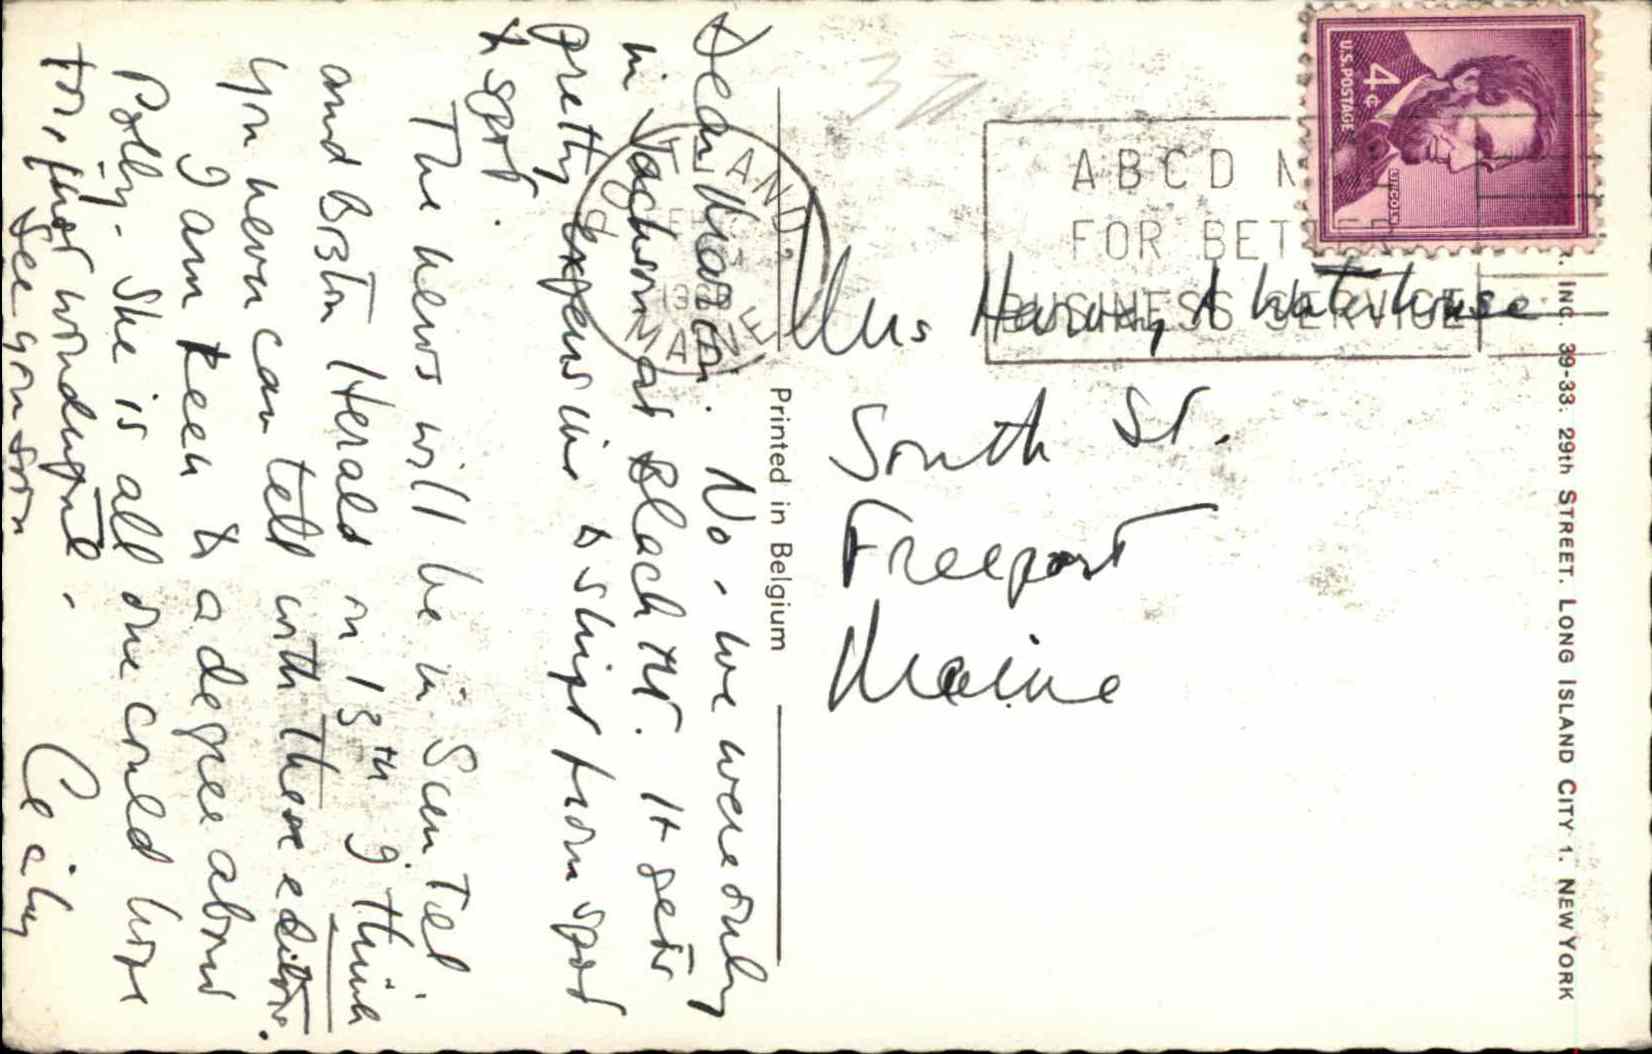 Dear Marion. No - we were only
in Jackson at Black Mt. It gets
pretty expensive to skip from spot
to spot.
The news will be in Sun Tel
and Boston Herald on 13th I think
You never can tell with these editors.
I am keen to a degree about
Polly. She is all one could hope
for, just wonderful.
See you soon
Cecily
Printed in Belgium
AND,
MAINE
ABCD
FOR
BUSINESS SERVICE
U.S. POSTAGE
4¢
LINCOLN
Mrs Harvey A Waterhouse
South St.
Freeport
Maine
INC. 39-33. 29th STREET. LONG ISLAND CITY 1. NEW YORK